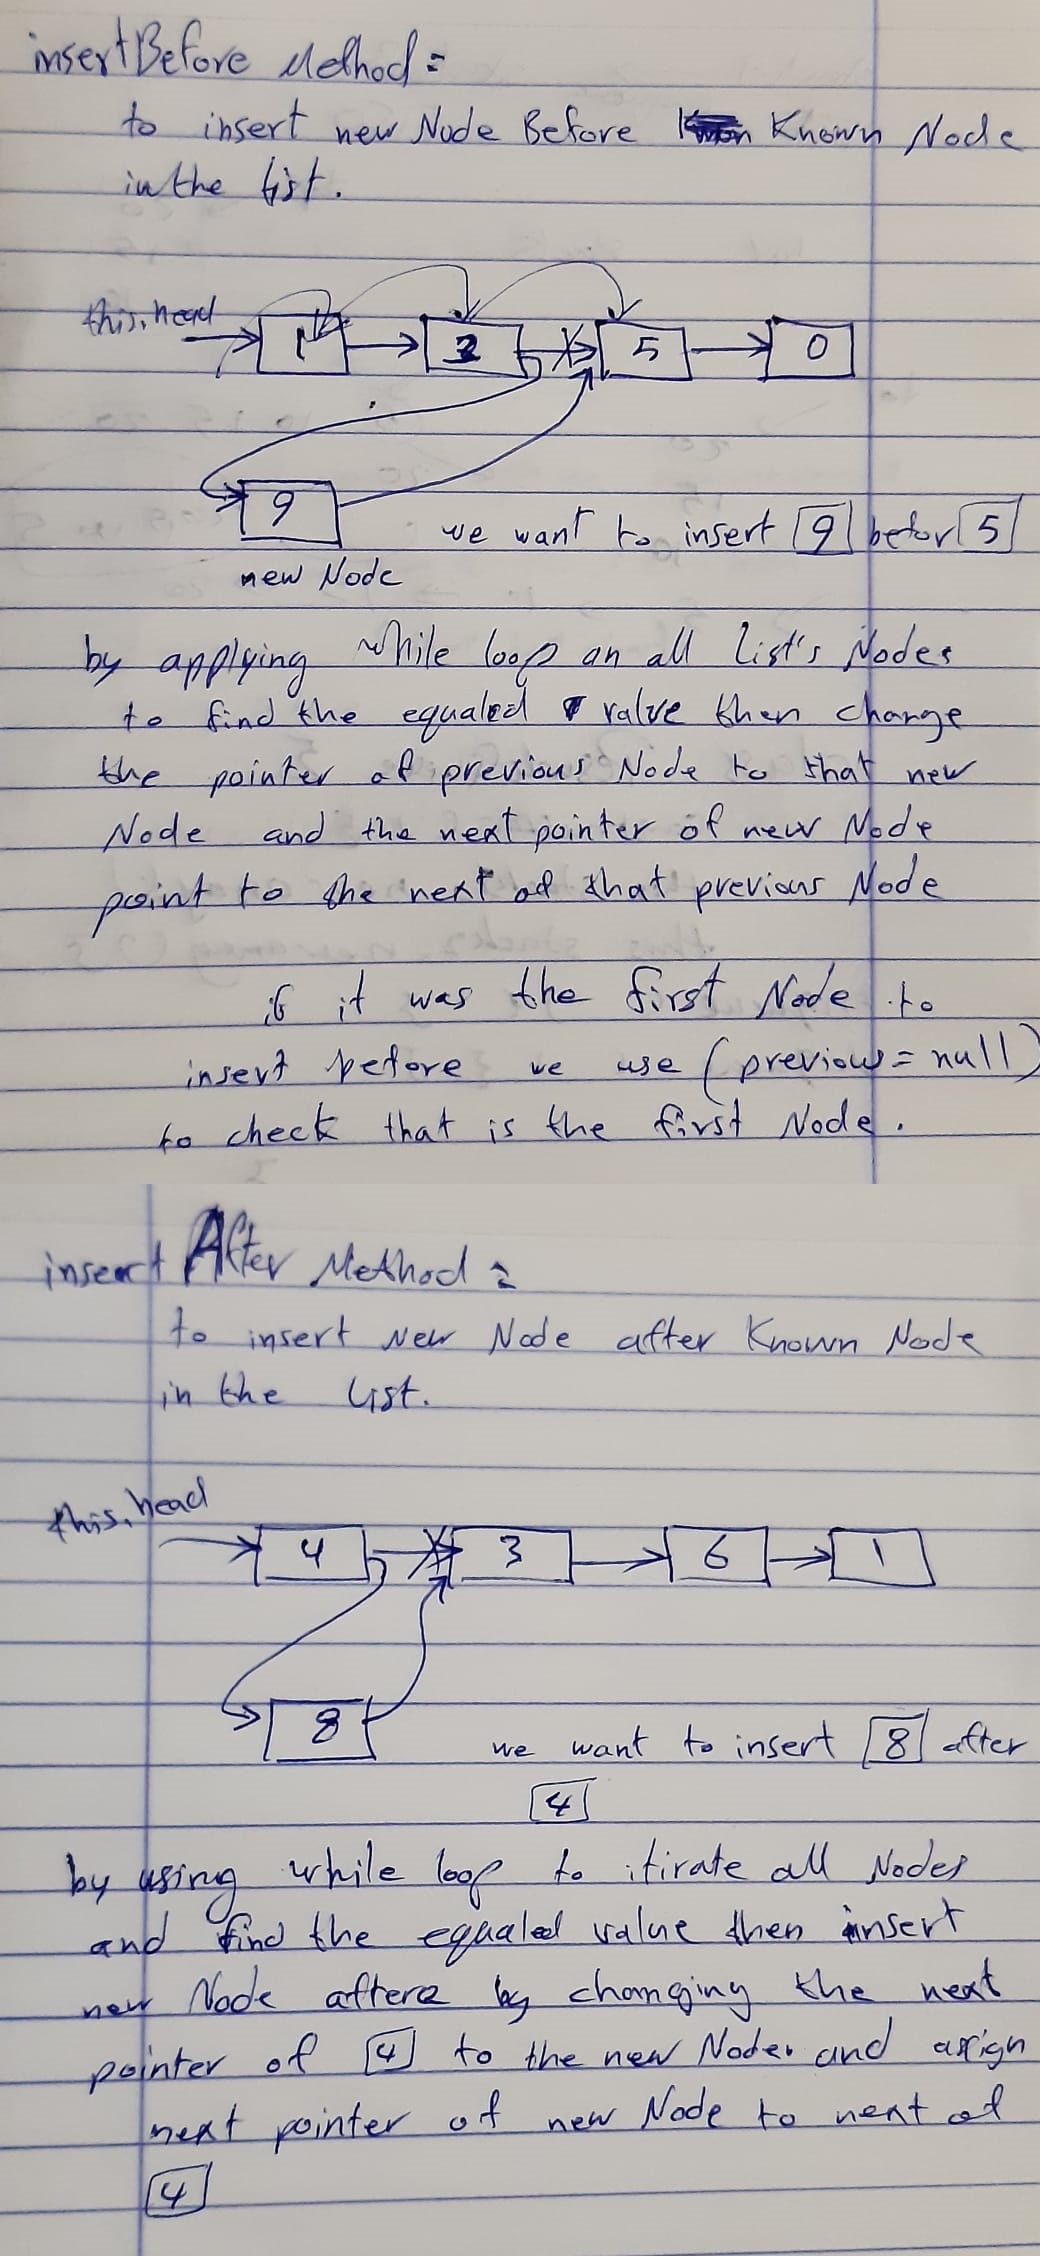 insertBefore Method:
to insert new Node Before Known Node
in the list.
this.head
1 2 5 0
9
we want to insert 9 befor 5
new Node
by applying while loop on all list's Nodes
to find the equaled value then change
the pointer of previous Node to that new
Node and the next pointer of new Node
point to the next of that previous Node
if it was the first Node to
insert before we use (previous = null)
to check that is the first Node.
insert After Method:
to insert New Node after Known Node
in the list.
this.head
4 3 6 1
8
we want to insert 8 after
4
by using while loop to itirate all Nodes
and find the equaled value then insert
new Node after by changing the next
pointer of 4 to the new Node. and assign
next pointer of new Node to next of
4